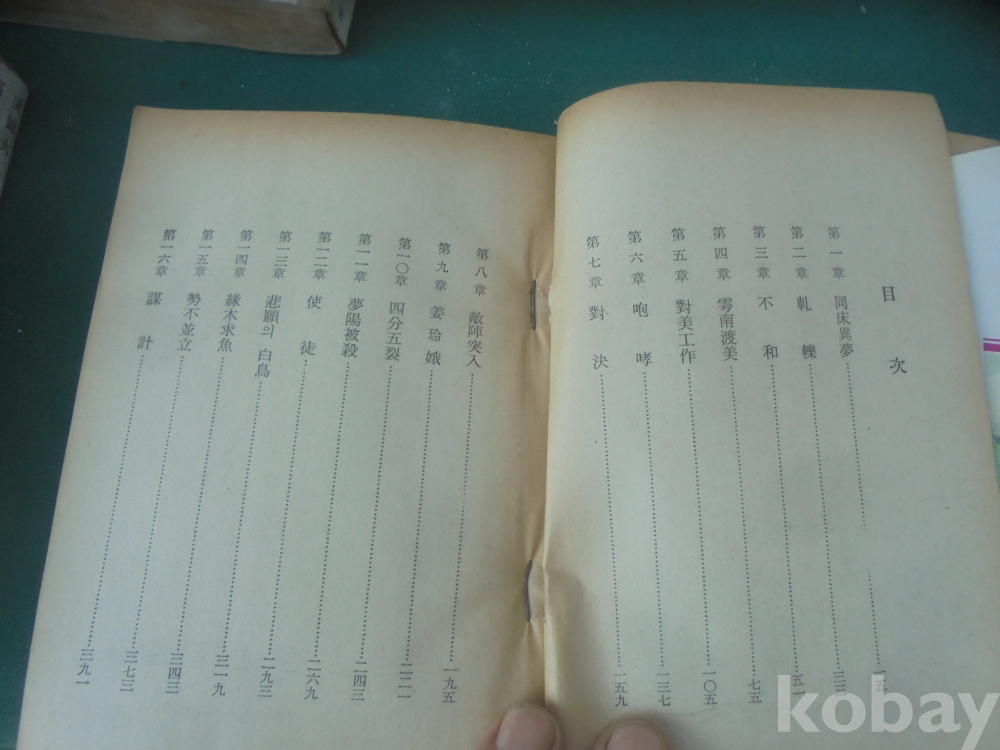 目次
第一章 同床異夢 一五
第二章 軋轢
第三章 不和 五一
第四章 雩南渡美 七五
第五章 對美工作 一〇五
第六章 咆哮 一三七
第七章 對決 一五九
第八章 敵陣突入 一九五
第九章 姜玲娥 二二一
第一〇章 四分五裂 二四三
第一一章 夢陽被殺 二六九
第一二章 使徒 二九三
第一三章 悲願의 白鳥 三一九
第一四章 緣木求魚 三四三
第一五章 勢不並立 三七三
第一六章 謀計 三九一
kobay